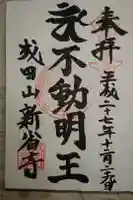 奉拝
平成二十七年十二月二六日
不動明王
成田山新谷寺